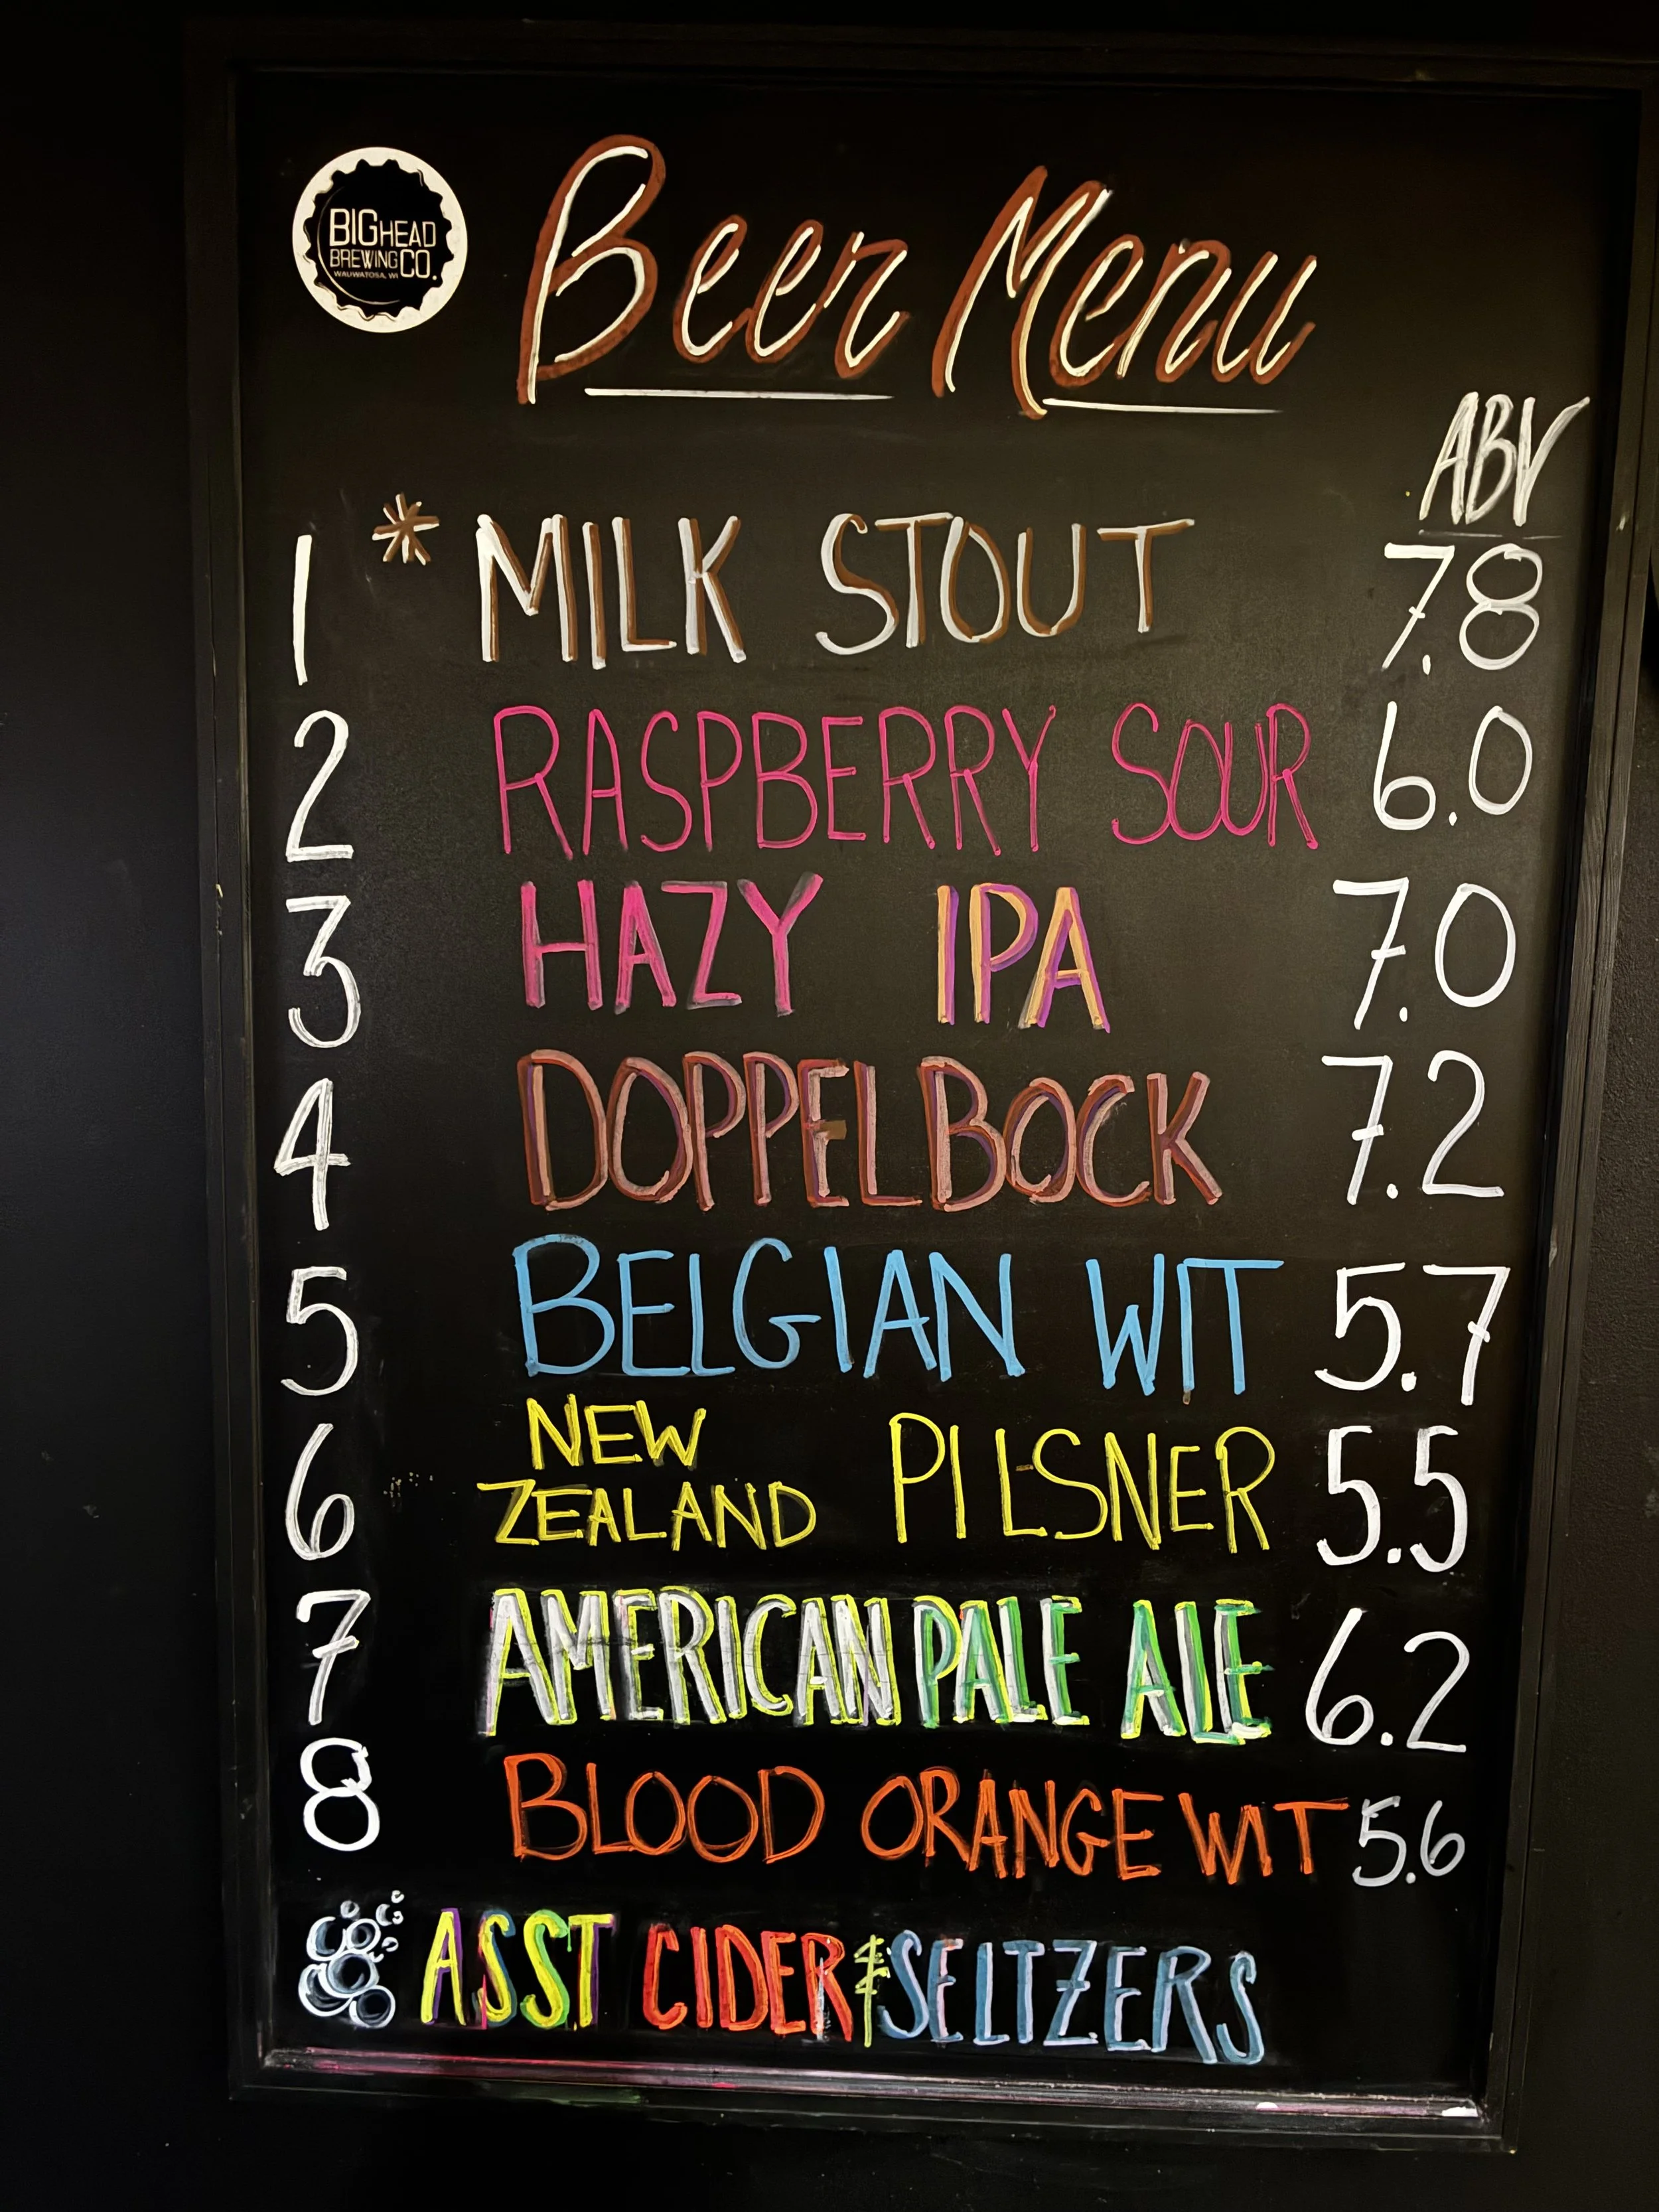 BIGHEAD
BREWING CO.
WAUWATOSA, WI
Beer Menu
ABV
1 * MILK STOUT 7.8
2 RASPBERRY SOUR 6.0
3 HAZY IPA 7.0
4 DOPPELBOCK 7.2
5 BELGIAN WIT 5.7
6 NEW ZEALAND PILSNER 5.5
7 AMERICAN PALE ALE 6.2
8 BLOOD ORANGE WIT 5.6
ASST CIDER & SELTZERS